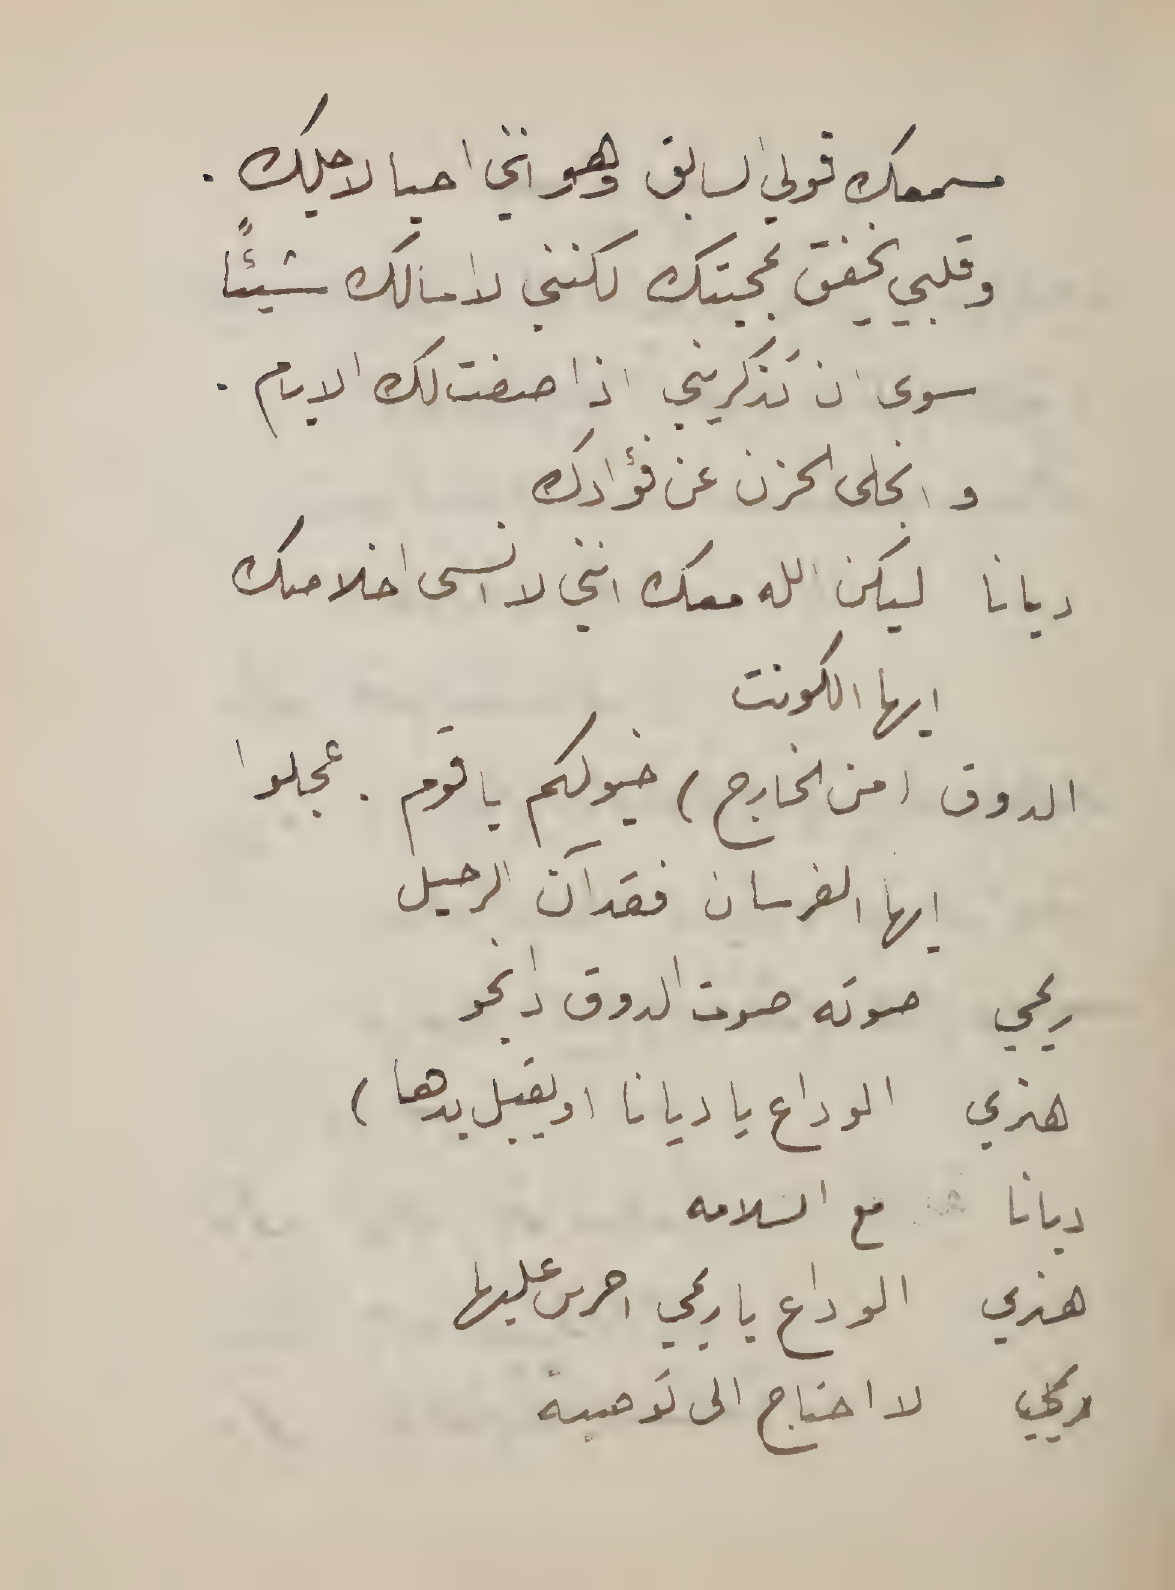 مسمعك قولي السابق وهو انني احيا لاجلك .
وقلبي يخفق بمحبتك لكنني لا اسالك شيئاً
سوى ان تذكريني اذا صفت لك الايام .
و انجلى الحزن عن فؤادك
ديانا ليكن الله معك انني لا انسى اخلاصك
ايها الكونت
الدوق (من الخارج) خيولكم يا قوم . عجلوا
ايها الفرسان فقد آن الرحيل
ريمي صوته صوت الدوق دانجو
هنري الوداع يا ديانا (ويقبل يدها)
ديانا مع السلامه
هنري الوداع يا ريمي احرس عليها
ريمي لا احتاج الى توصية